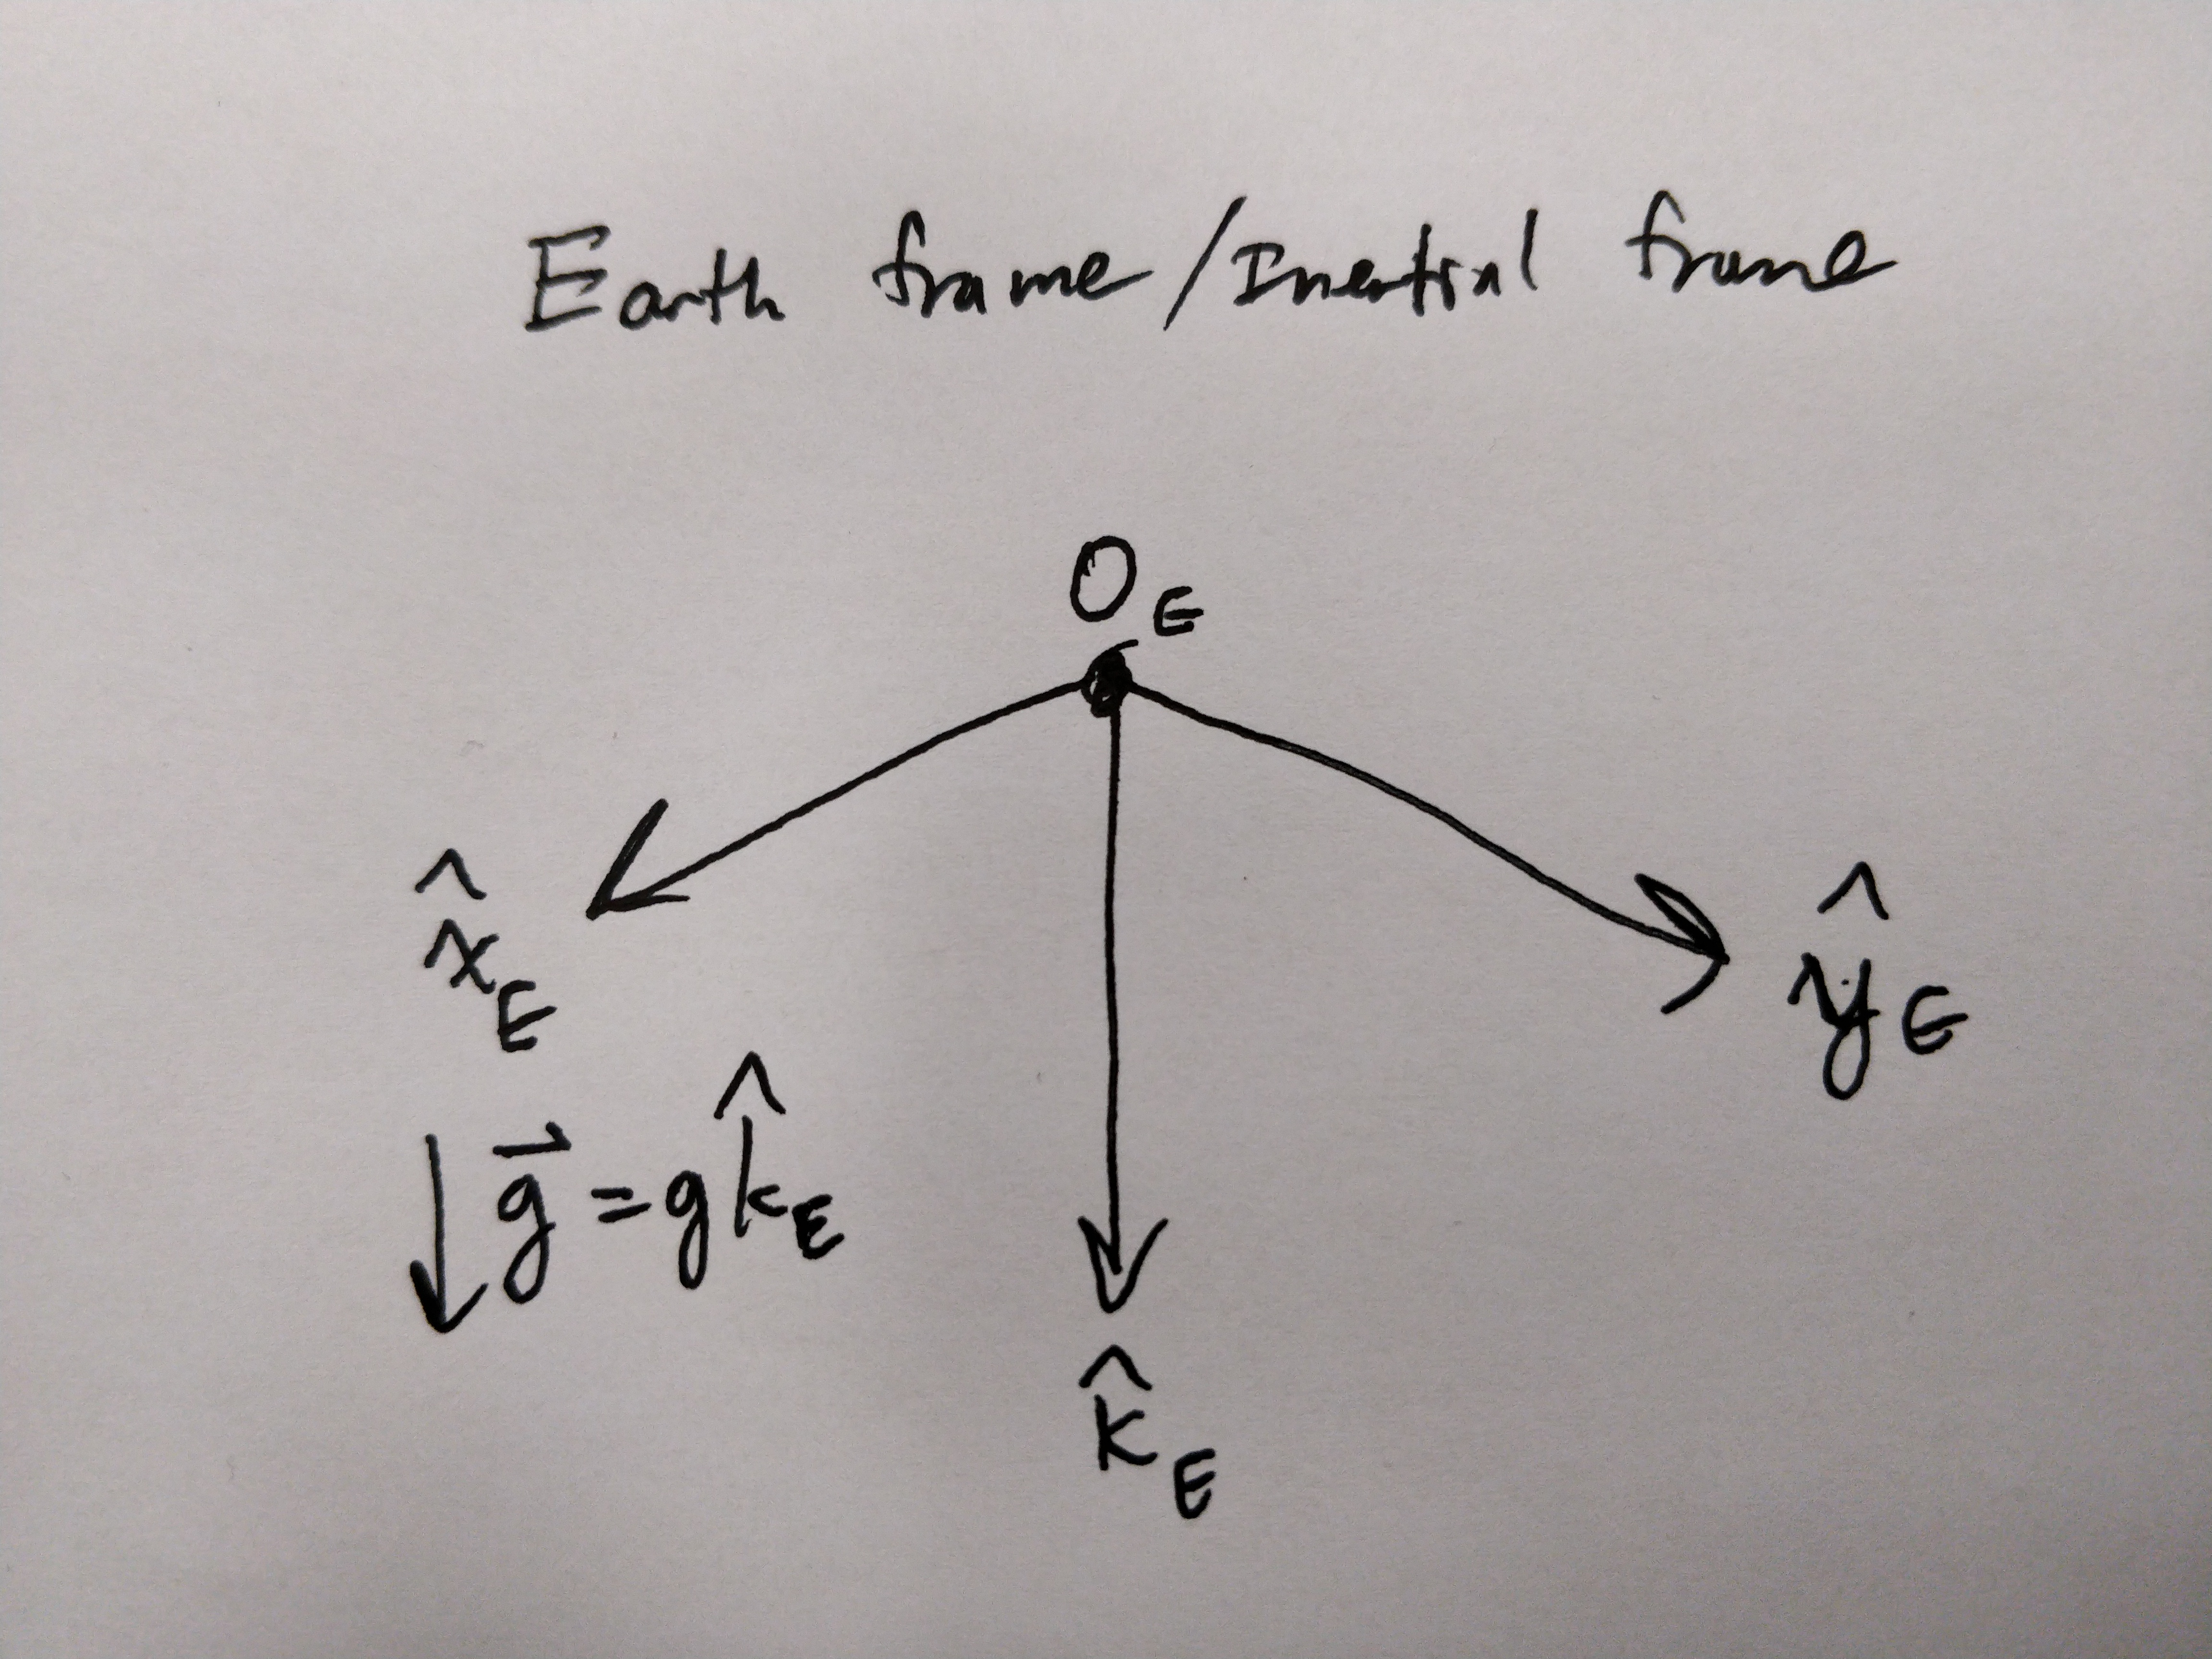 Earth frame/Inertial frame
O_E
x̂_E
ŷ_E
g⃗ = g k̂_E
k̂_E